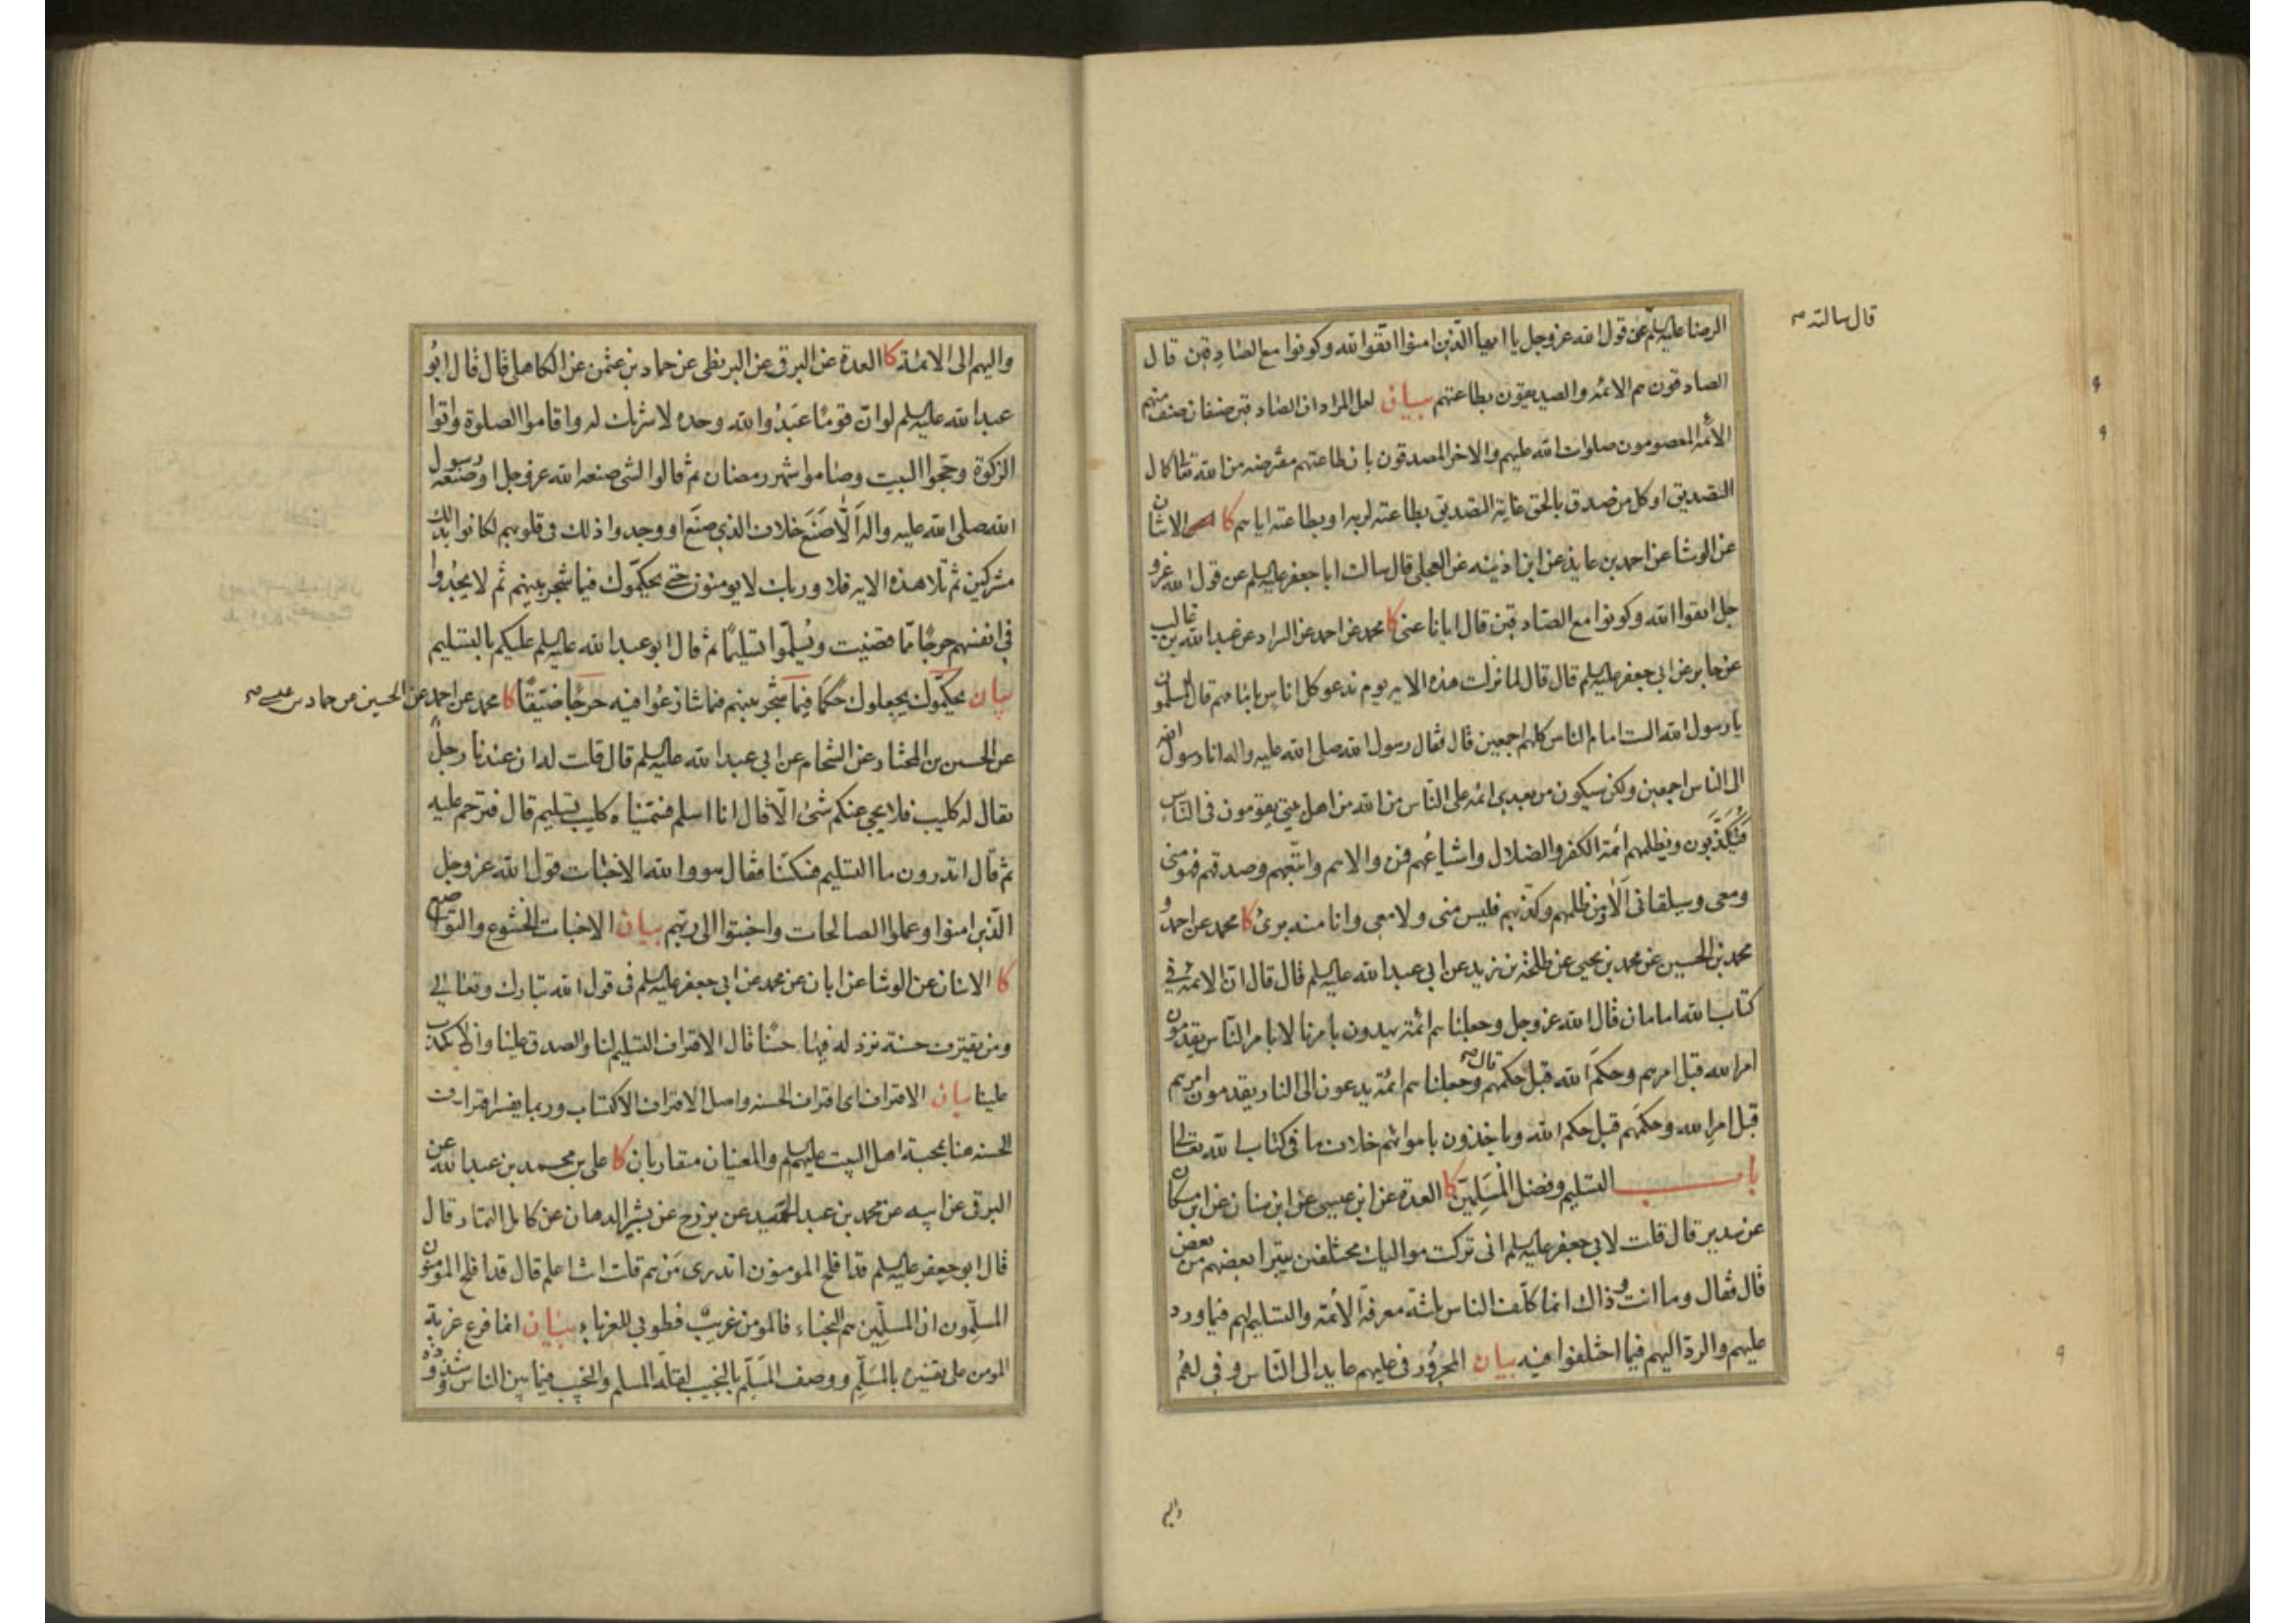 قال سالته صح
الرضا عليه السلم عن قول الله عز وجل يا ايها الذين امنوا اتقوا الله وكونوا مع الصادقين قال
الصادقون هم الائمه والصديقون بطاعتهم بيان لعل المراد ان الصادقين صنفان صنف منهم
الأئمه المعصومون صلوات الله عليهم والاخر المصدقون بان طاعتهم مفترضه من الله تعالى كمال
التصديق او كل من صدق بالحق غاية التصديق بطاعته لربه او بطاعته اياهم كا الاثنان
عن الوشا عن احمد بن عايذ عن ابن اذينه عن العجلي قال سالت ابا جعفر عليه السلم عن قول الله عز و
جل اتقوا الله وكونوا مع الصادقين قال ايانا عنى كا محمد عن احمد عن السراد عن عبد الله بن غالب
عن جابر عن ابي جعفر عليه السلم قال قال لما نزلت هذه الايه يوم ندعو كل اناس بامامهم قال المسلمون
يا رسول الله الست امام الناس كلهم اجمعين قال فقال رسول الله صلى الله عليه واله انا رسول الله
الى الناس اجمعين ولكن سيكون من بعدي ائمه على الناس من الله من اهل بيتي يقومون في الناس
فيُكَذَّبون ويظلمهم ائمة الكفر والضلال واشياعهم فمن والاهم واتبعهم وصدقهم فهو مني
ومعي وسيلقاني اَلا ومن ظلمهم وكذبهم فليس مني ولا معي وانا منه برئ كا محمد عن احمد و
محمد بن الحسين عن محمد بن يحيى عن طلحة بن زيد عن ابي عبد الله عليه السلم قال قال ان الائمه في
كتاب الله امامان قال الله عز وجل وجعلناهم ائمة يهدون بامرنا لا بامر الناس يقدمون
امر الله قبل امرهم وحكم الله قبل حكمهم قال صح وجعلناهم ائمة يدعون الى النار يقدمون امرهم
قبل امر الله وحكمهم قبل حكم الله وياخذون باهوائهم خلاف ما في كتاب الله تعالى
باب التسليم وفضل المسَلِّمين كا العدة عن ابن عيسى عن ابن سنان عن ابن مسكان
عن سدير قال قلت لابي جعفر عليه السلم اني تركت مواليك مختلفين يتبرا بعضهم من بعض
قال فقال وما انت وذاك انما كلف الناس ثلثة معرفة الائمة والتسليم لهم فيما ورد
عليهم والرد اليهم فيما اختلفوا فيه بيان المجرور في عليهم عايد الى الناس و في لهم
واليهم
واليهم الى الائمة كا العدة عن البرقي عن البزنطي عن حماد بن عثمن عن الكاهلي قال قال ابو
عبد الله عليه السلم لو ان قومًا عبدوا الله وحده لا شريك له واقاموا الصلوة واتوا
الزكوة وحجوا البيت وصاموا شهر رمضان ثم قالوا لشئ صنعه الله عز وجل او صنعه رسول
الله صلى الله عليه واله اَلّا صَنَعَ خلاف الذي صنع او وجدوا ذلك في قلوبهم لكانوا بذلك
مشركين ثم تلا هذه الايه فلا وربك لا يومنون حتى يحكموك فيما شجر بينهم ثم لا يجدوا
في انفسهم حرجًا مما قضيت ويسلموا تسليمًا ثم قال ابو عبد الله عليه السلم عليكم بالتسليم
بيان يحكموك يجعلوك حكمًا فيما شجر بينهم فيما تنازعوا فيه حرجًا ضيقًا كا محمد عن احمد عن الحسين عن حماد بن عيسى صح
عن الحسين بن المختار عن الشحام عن ابي عبد الله عليه السلم قال قلت له ان عندنا رجلًا
يقال له كليب فلا يجئ عنكم شئ الا قال انا اسلم فسميناه كليب تسليم قال فترحم عليه
ثم قال اتدرون ما التسليم فسكتنا فقال هو والله الاخبات قول الله عز وجل
الذين امنوا وعملوا الصالحات واخبتوا الى ربهم بيان الاخبات الخشوع والتواضع
كا الاثنان عن الوشا عن ابان عن محمد عن ابي جعفر عليه السلم في قول الله تبارك وتعالى
ومن يقترف حسنة نزد له فيها حسنًا قال الاقتراف التسليم لنا والصدق علينا والا يكذب
علينا بيان الاقتراف اي اقتراف الحسنه واصل الاقتراف الاكتساب وربما يفسر اقتراف
الحسنه هنا بمحبة اهل البيت عليهم السلم والمعنيان متقاربان كا علي بن محمد بن عبد الله عن
البرقي عن ابيه عن محمد بن عبد الحميد عن بزرج عن بشير الدهان عن كامل التمار قال
قال ابو جعفر عليه السلم قد افلح المومنون اتدري مَن هم قلت انت اعلم قال قد افلح المومنون
المسلِّمون ان المسلِّمين هم النجباء فالمومن غريب فطوبى للغرباء بيان انما فرع غربة
المومن على تفسيره بالمسَلِّم ووصف المسلِّم بالنجيب لقلة المسلم والنجيب فيما بين الناس وشذوذه